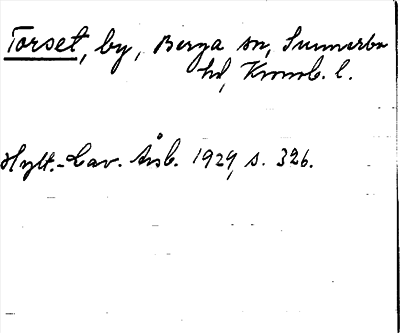 Torset, by, Berga sn, Sunnerbo
hd, Kronob. l.
Hylt.-Cav. Årsb. 1929, s. 326.